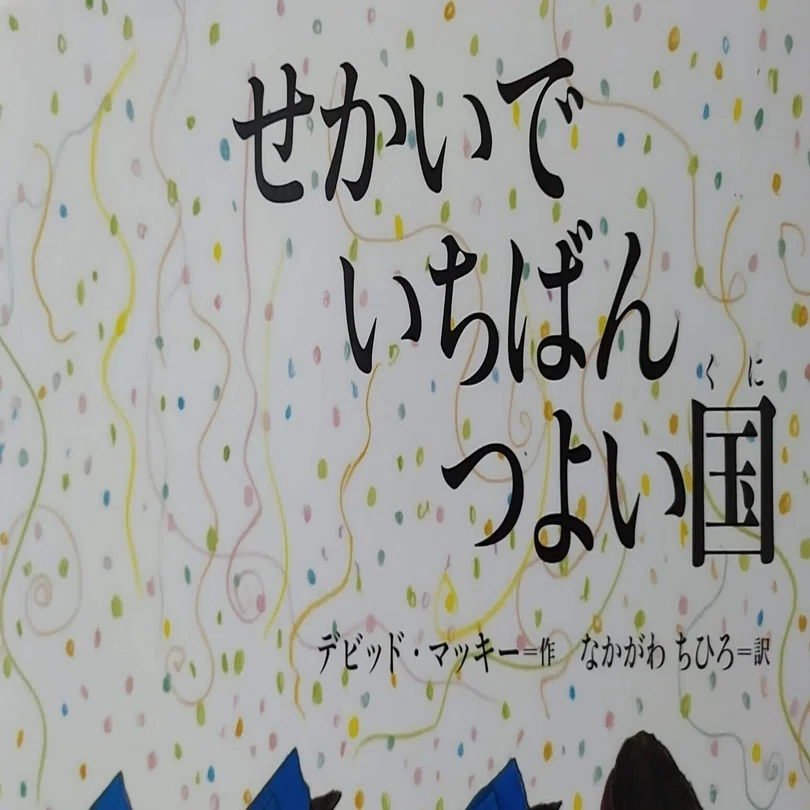 せかいで
いちばん
くに
つよい国
デビッド・マッキー=作 なかがわ ちひろ=訳